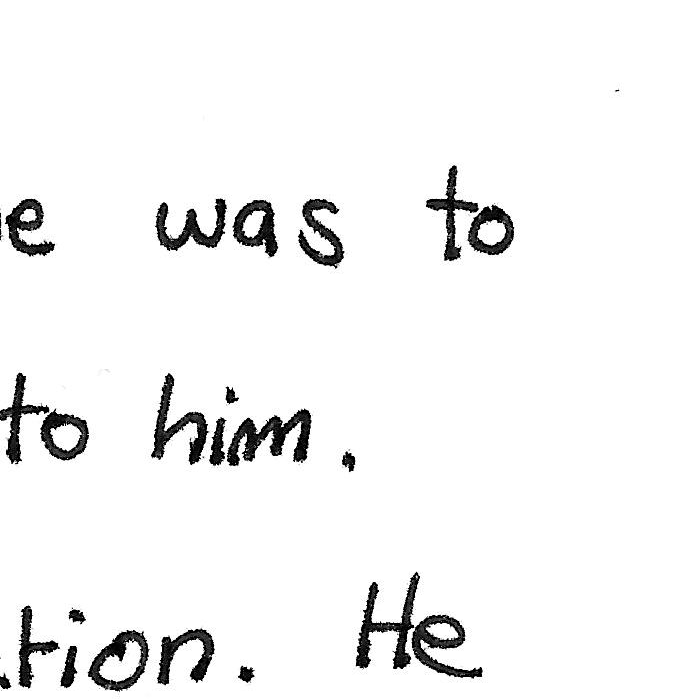 e was to
to him.
tion. He